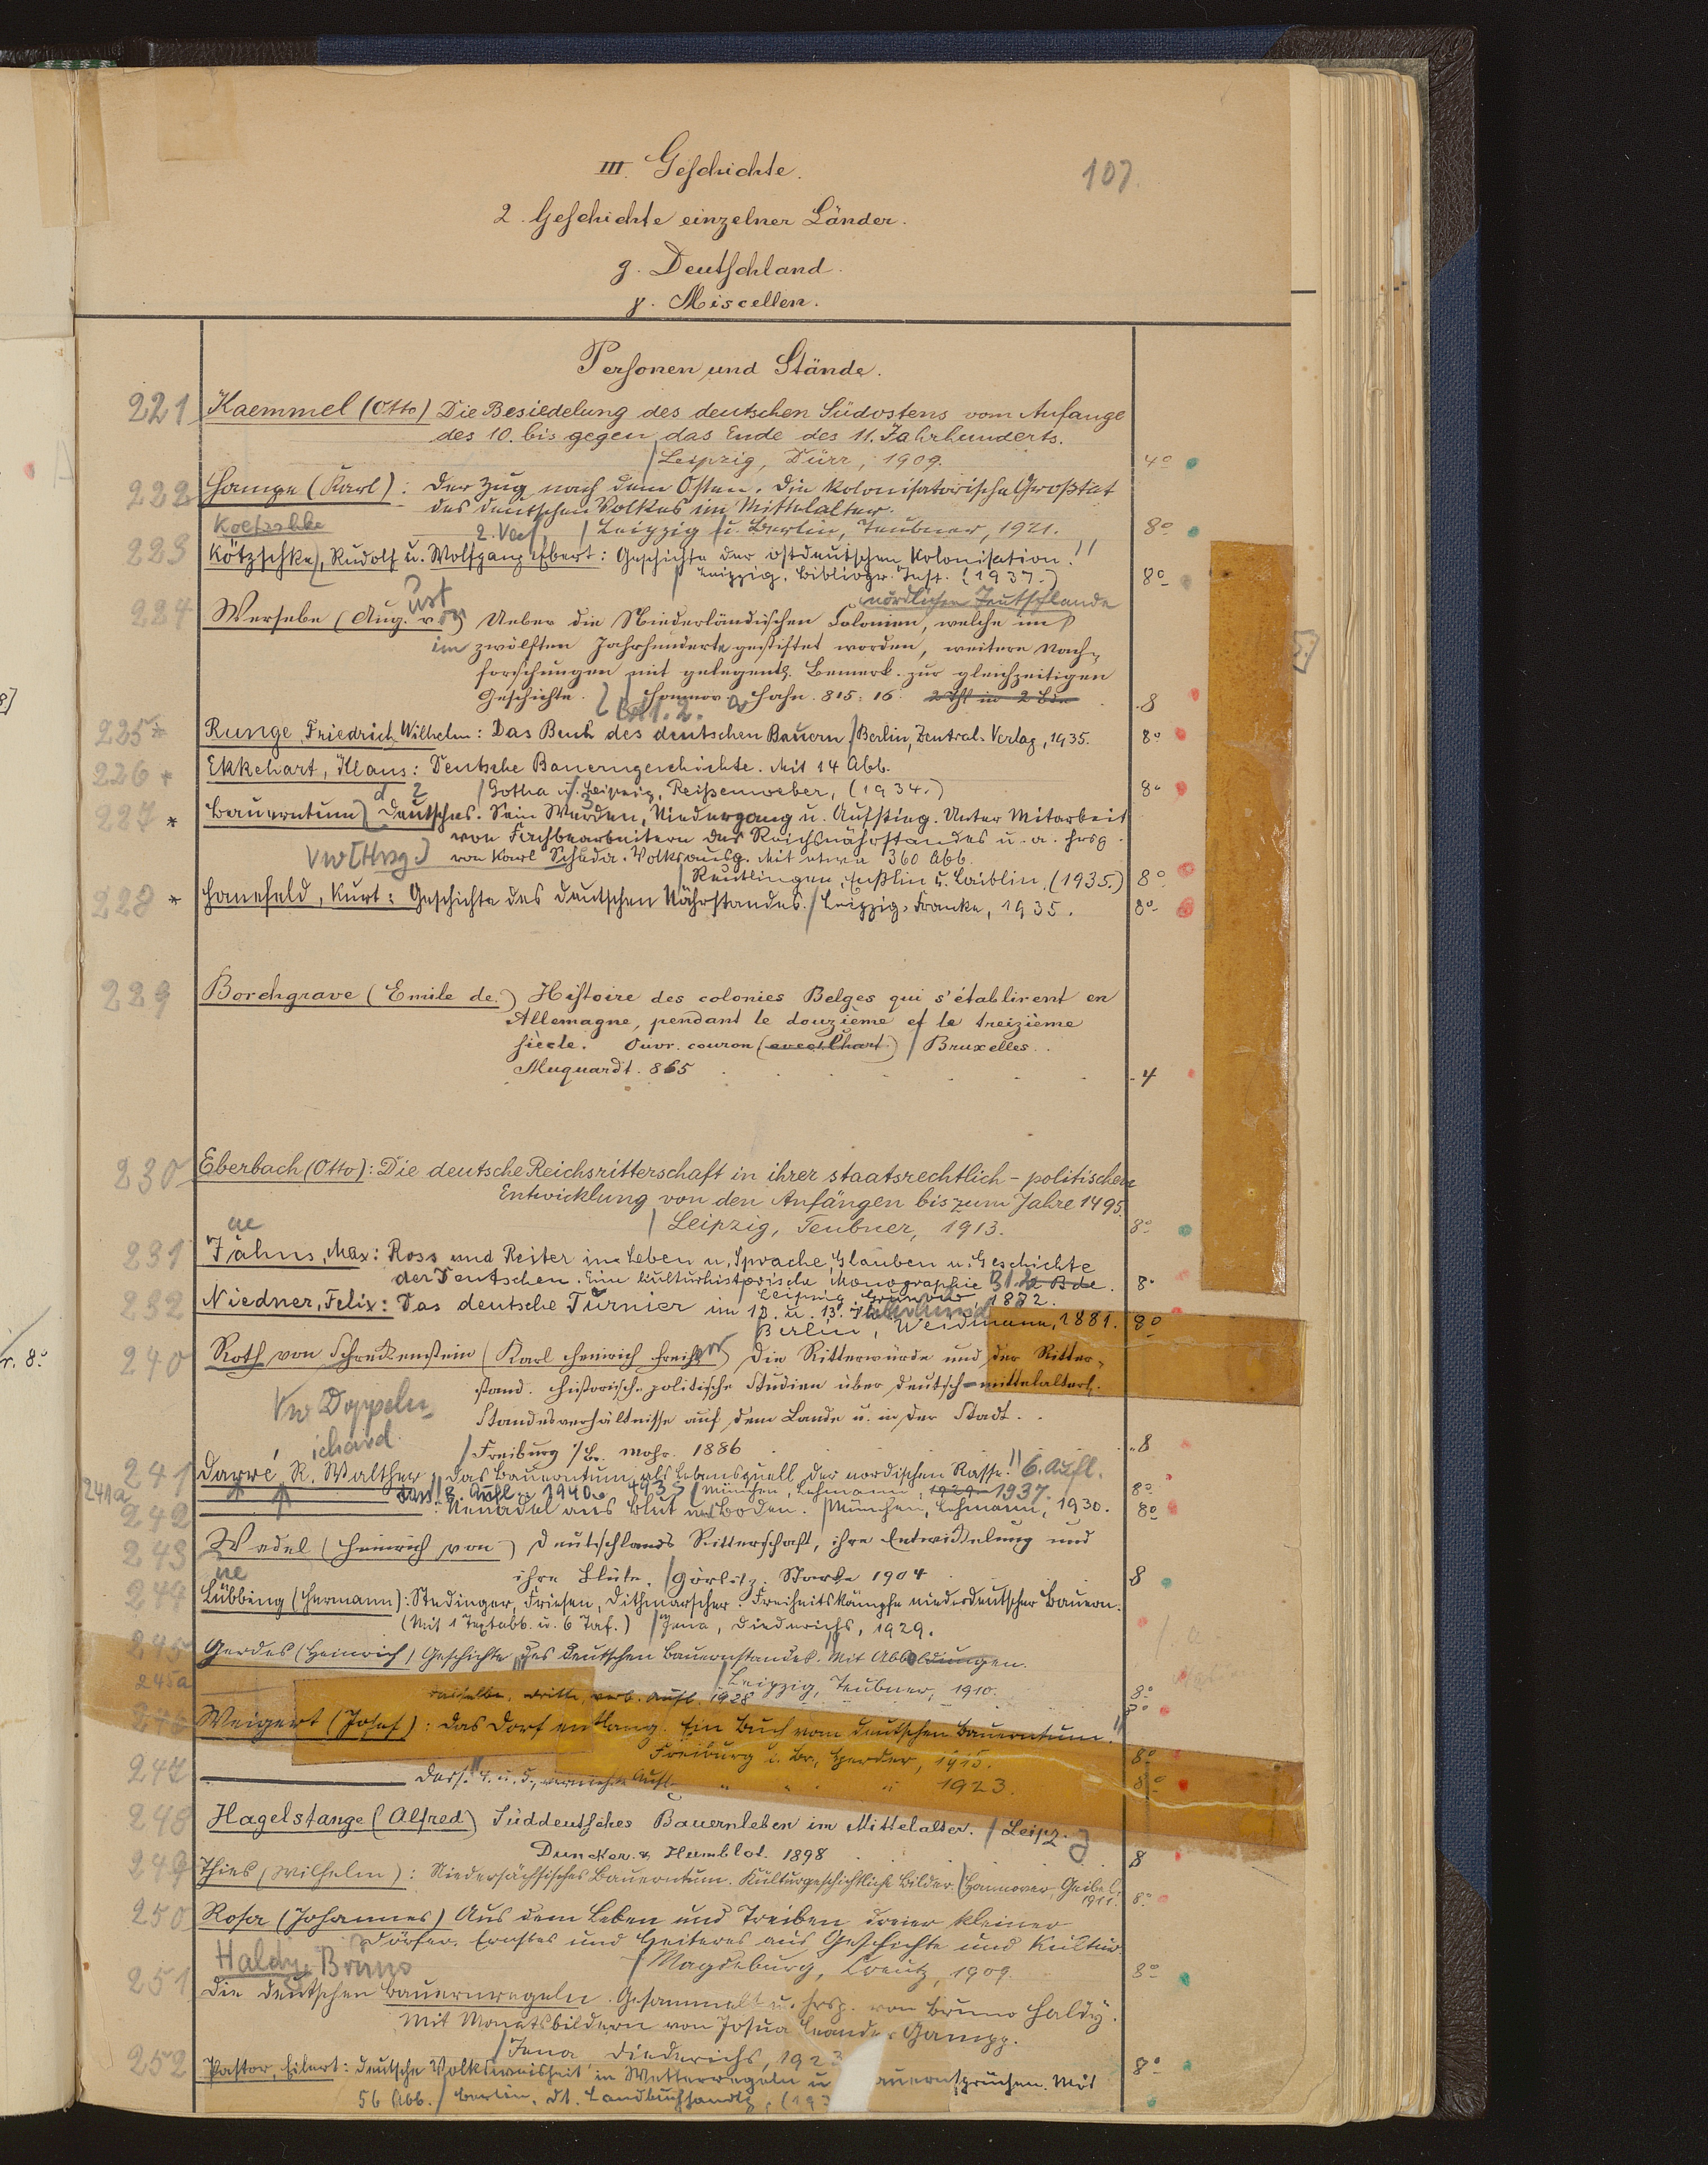 III. Geschichte.
107.
2. Geschichte einzelner Länder.
g. Deutschland.
γ. Miscellen.
Personen und Stände.
221 Kaemmel (Otto) Die Besiedelung des deutschen Südostens vom Anfange
des 10. bis gegen das Ende des 11. Jahrhunderts.
Leipzig, Dürr, 1909. 4°
222 Hampe (Karl): Der Zug nach dem Osten. Die kolonisatorische Großtat
des deutschen Volkes im Mittelalter.
Koetzschke
Leipzig u. Berlin, Teubner, 1921. 8°
223 Kötzschke, Rudolf u. Wolfgang Ebert: Geschichte der ostdeutschen Kolonisation.
Leipzig, Bibliogr. Inst. (1937.) 8°
ust nördlichen Teutschlande
224 Wersebe (Aug. von) Ueber die Niederländischen Colonien, welche im
im zwölften Jahrhunderte gestiftet worden, weitere Nach-
forschungen mit gelegentl. Bemerk. zur gleichzeitigen
Geschichte. Hannover Hahn. 815. 16. 8
Bd 1. 2.
225* Runge, Friedrich Wilhelm: Das Buch des deutschen Bauern / Berlin, Zentral-Verlag, 1935. 8°
226* Ekkehart, Klaus: Deutsche Bauerngeschichte. Mit 14 Abb.
Gotha u. Leipzig, Reißenweber, (1934.) 8°
227* Bauerntum, Deutsches. Sein Werden, Niedergang u. Aufstieg. Unter Mitarbeit
von Fachbearbeitern des Reichsnährstandes u. a. hrsg.
Vw [Hrsg.] von Karl Scheda. Volksausg. Mit etwa 360 Abb.
Reutlingen, Enßlin u. Laiblin, (1935.) 8°
228* Hanefeld, Kurt: Geschichte des deutschen Nährstandes. / Leipzig, Franke, 1935. 8°
229 Borchgrave (Emile de.) Histoire des colonies Belges qui s'établirent en
Allemagne, pendant le douzième et le treizième
siècle. Ouvr. couron (avec 1 Chart.) / Bruxelles.
Muquardt. 865 4
230 Eberbach (Otto): Die deutsche Reichsritterschaft in ihrer staatsrechtlich-politischen
Entwicklung von den Anfängen bis zum Jahre 1495.
Leipzig, Teubner, 1913. 8°
ae
231 Jähns, Max: Ross und Reiter in Leben u. Sprache, Glauben u. Geschichte
der Deutschen. Eine kulturhistorische Monographie 8°
Leipzig, Grunow 1872.
232 Niedner, Felix: Das deutsche Turnier im 12. u. 13. Jahrhundert
Berlin, Weidmann, 1881. 8°
240 Roth von Schreckenstein (Karl Heinrich Freiherr) Die Ritterwürde und der Ritter-
stand. Historisch-politische Studien über deutsch-mittelalterl.
Vw Doppeln.
Standesverhältnisse auf dem Lande u. in der Stadt.
ichard
Freiburg i/Br. Mohr. 1886 8
241 Darré, R. Walther: Das Bauerntum als Lebensquell der nordischen Rasse. 6. Aufl.
241a Dass. 8. Aufl. 1940. 1935 / München, Lehmann, 1929 1937. 8°
242 : Neuadel aus Blut und Boden. / München, Lehmann, 1930. 8°
243 Wedel (Heinrich von) Deutschlands Ritterschaft, ihre Entwickelung und
ihre Blüte. / Görlitz, Starke 1904 8
ue
244 Lübbing (Hermann): Stedinger, Friesen, Dithmarscher. Freiheitskämpfe niederdeutscher Bauern.
(Mit 1 Textabb. u. 6 Taf.) / Jena, Diederichs, 1929.
245 Gerdes (Heinrich) Geschichte des deutschen Bauernstandes. Mit Abbildungen.
Leipzig, Teubner, 1910. 8°
245a Dasselbe, dritte, verb. Aufl. 1928 8°
246 Weigert (Josef): Das Dorf entlang. Ein Buch vom deutschen Bauerntum.
Freiburg i. Br., Herder, 1915. 8°
247 Dass. 4. u. 5., vermehrte Aufl. " " " 1923. 8°
248 Hagelstange (Alfred) Süddeutsches Bauernleben im Mittelalter. / Leipz.
Duncker & Humblot. 1898 8
249 Thies (Wilhelm): Niedersächsisches Bauerntum. Kulturgeschichtliche Bilder. / Hannover, Geibel
1911. 8°
250 Rosa (Johannes) Aus dem Leben und Treiben dreier kleiner
Dörfer. Ernstes und Heiteres aus Geschichte und Kultur
Haldy, Bruno
Magdeburg, Creutz, 1909. 8°
251 Die deutschen Bauernregeln. Gesammelt u. hrsg. von Bruno Haldy.
Mit Monatsbildern von Josua Leander Gampp.
Jena Diederichs, 1923 8°
252 Pastor, Eilert: Deutsche Volksweisheit in Wetterregeln u auernsprüchen. Mit
56 Abb. / Berlin, Dt. Landbuchhandlg, (193